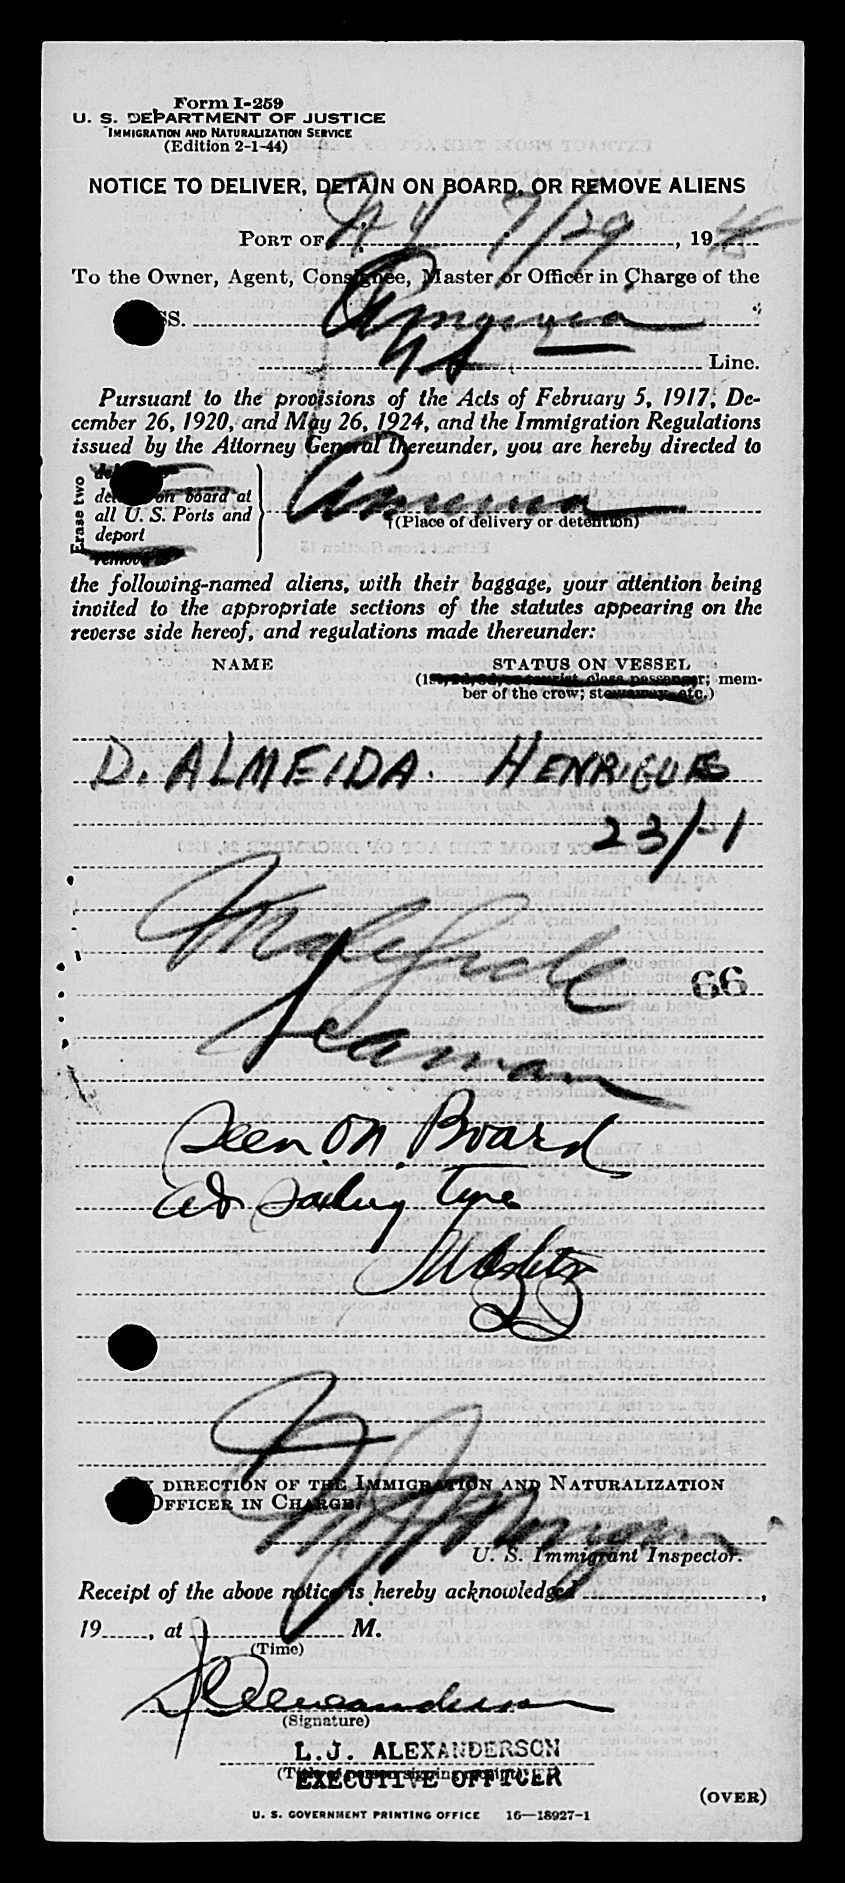 Form I-259
U. S. DEPARTMENT OF JUSTICE
IMMIGRATION AND NATURALIZATION SERVICE
(Edition 2-1-44)
NOTICE TO DELIVER, DETAIN ON BOARD, OR REMOVE ALIENS
PORT OF N Y 7/29, 19
To the Owner, Agent, Consignee, Master or Officer in Charge of the
SS.
Line.
Pursuant to the provisions of the Acts of February 5, 1917, De-
cember 26, 1920, and May 26, 1924, and the Immigration Regulations
issued by the Attorney General thereunder, you are hereby directed to
Erase two
detain on board at
all U. S. Ports and
deport
remove to
(Place of delivery or detention)
the following-named aliens, with their baggage, your attention being
invited to the appropriate sections of the statutes appearing on the
reverse side hereof, and regulations made thereunder:
NAME STATUS ON VESSEL
(1st, 2d, 3d, or tourist class passenger; mem-
ber of the crew; stowaway, etc.)
D. ALMEIDA. HENRIQUES
23/-1
Malafide
66
Seaman
Seen on Board
at Sailing Time
BY DIRECTION OF THE IMMIGRATION AND NATURALIZATION
OFFICER IN CHARGE.
Morgan
U. S. Immigrant Inspector.
Receipt of the above notice is hereby acknowledged ,
19 , at M.
(Time)
(Signature)
L.J. ALEXANDERSON
(Title of person signing receipt)
EXECUTIVE OFFICER
(OVER)
U. S. GOVERNMENT PRINTING OFFICE 16—18927-1